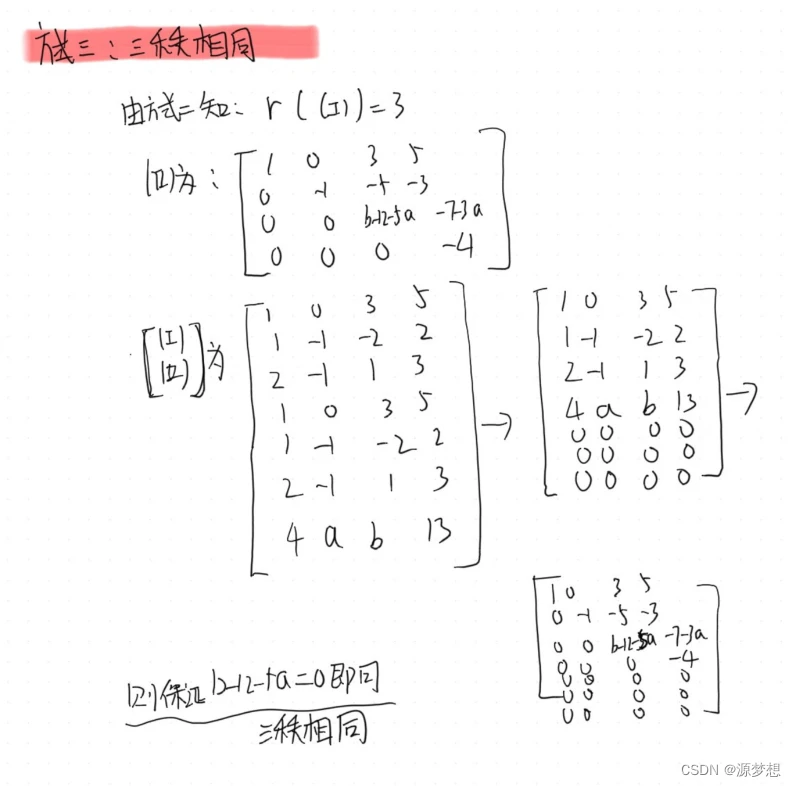 方式三：三秩相同
由方式二知：r((I))=3
(II)为：
1 0 3 5
0 -1 -5 -3
0 0 b-12-5a -7-3a
0 0 0 -4
[(I) (II)]为
1 0 3 5
1 -1 -2 2
2 -1 1 3
1 0 3 5
1 -1 -2 2
2 -1 1 3
4 a b 13
→
1 0 3 5
1 -1 -2 2
2 -1 1 3
4 a b 13
0 0 0 0
0 0 0 0
0 0 0 0
→
1 0 3 5
0 -1 -5 -3
0 0 b-12-5a -7-3a
0 0 0 -4
0 0 0 0
0 0 0 0
0 0 0 0
则保证b-12-5a=0即可
三秩相同
CSDN @源梦想